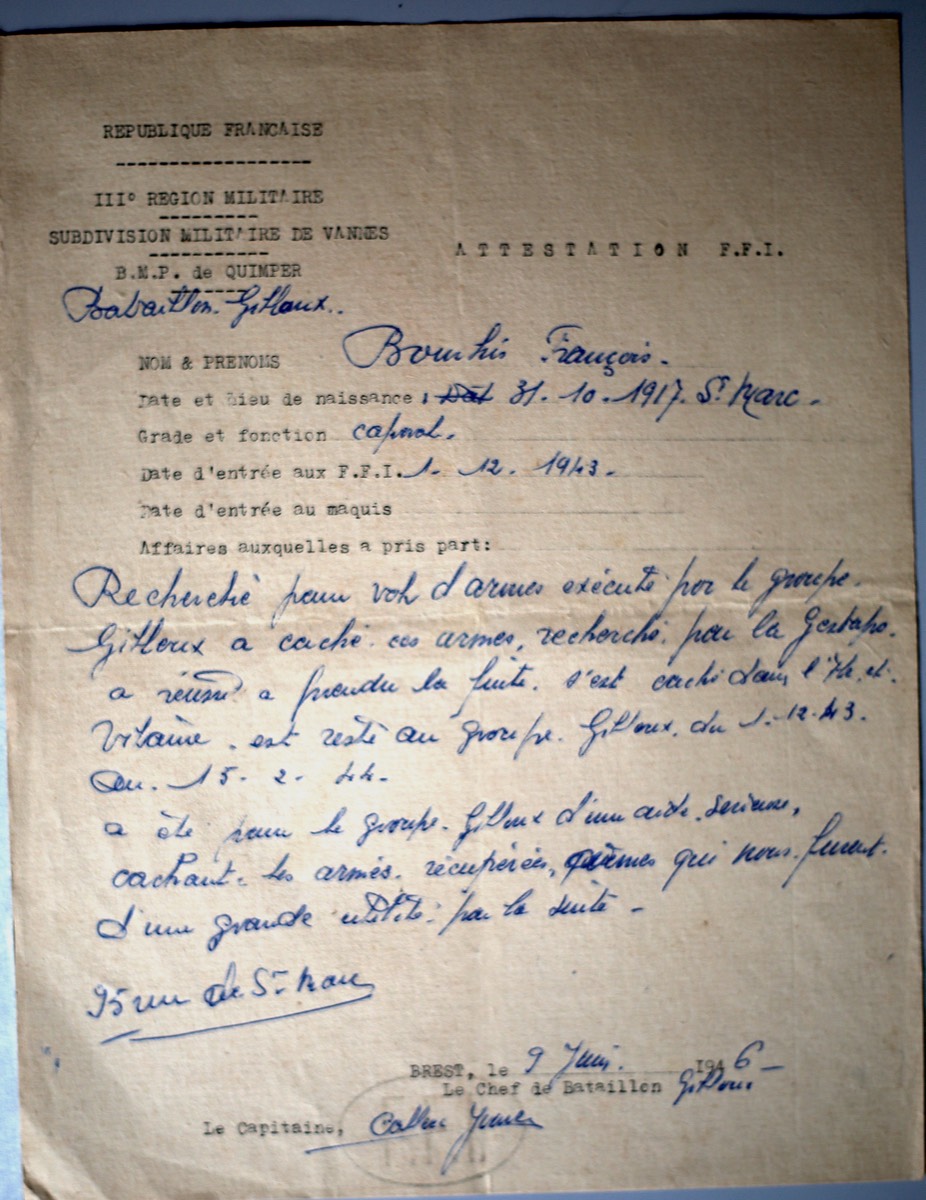 REPUBLIQUE FRANCAISE
III° REGION MILITAIRE
SUBDIVISION MILITAIRE DE VANNES
ATTESTATION F.F.I.
B.M.P. de QUIMPER
Bataillon. Gilloux.
NOM & PRENOMS Bourhis François.
Date et Lieu de naissance : 31. 10. 1917. St Marc.
Grade et fonction caporal.
Date d'entrée aux F.F.I. 1. 12. 1943.
Date d'entrée au maquis
Affaires auxquelles a pris part:
Recherché pour vol d'armes exécuté par le groupe.
Gilloux a caché ces armes, recherché par la Gestapo.
a réussi a prendre la fuite. s'est caché dans l'Ile. et.
Vilaine. est resté au groupe. Gilloux. du 1. 12. 43.
au. 15. 2. 44.
a été pour le groupe. Gilloux d'une aide. serieuse,
cachant. les armes. récupérées, armes qui nous. furent.
d'une grande utilité. par la suite.
95 rue de St Marc
BREST, le 9 Juin. 1946
Le Chef de Bataillon Gilloux
Le Capitaine,